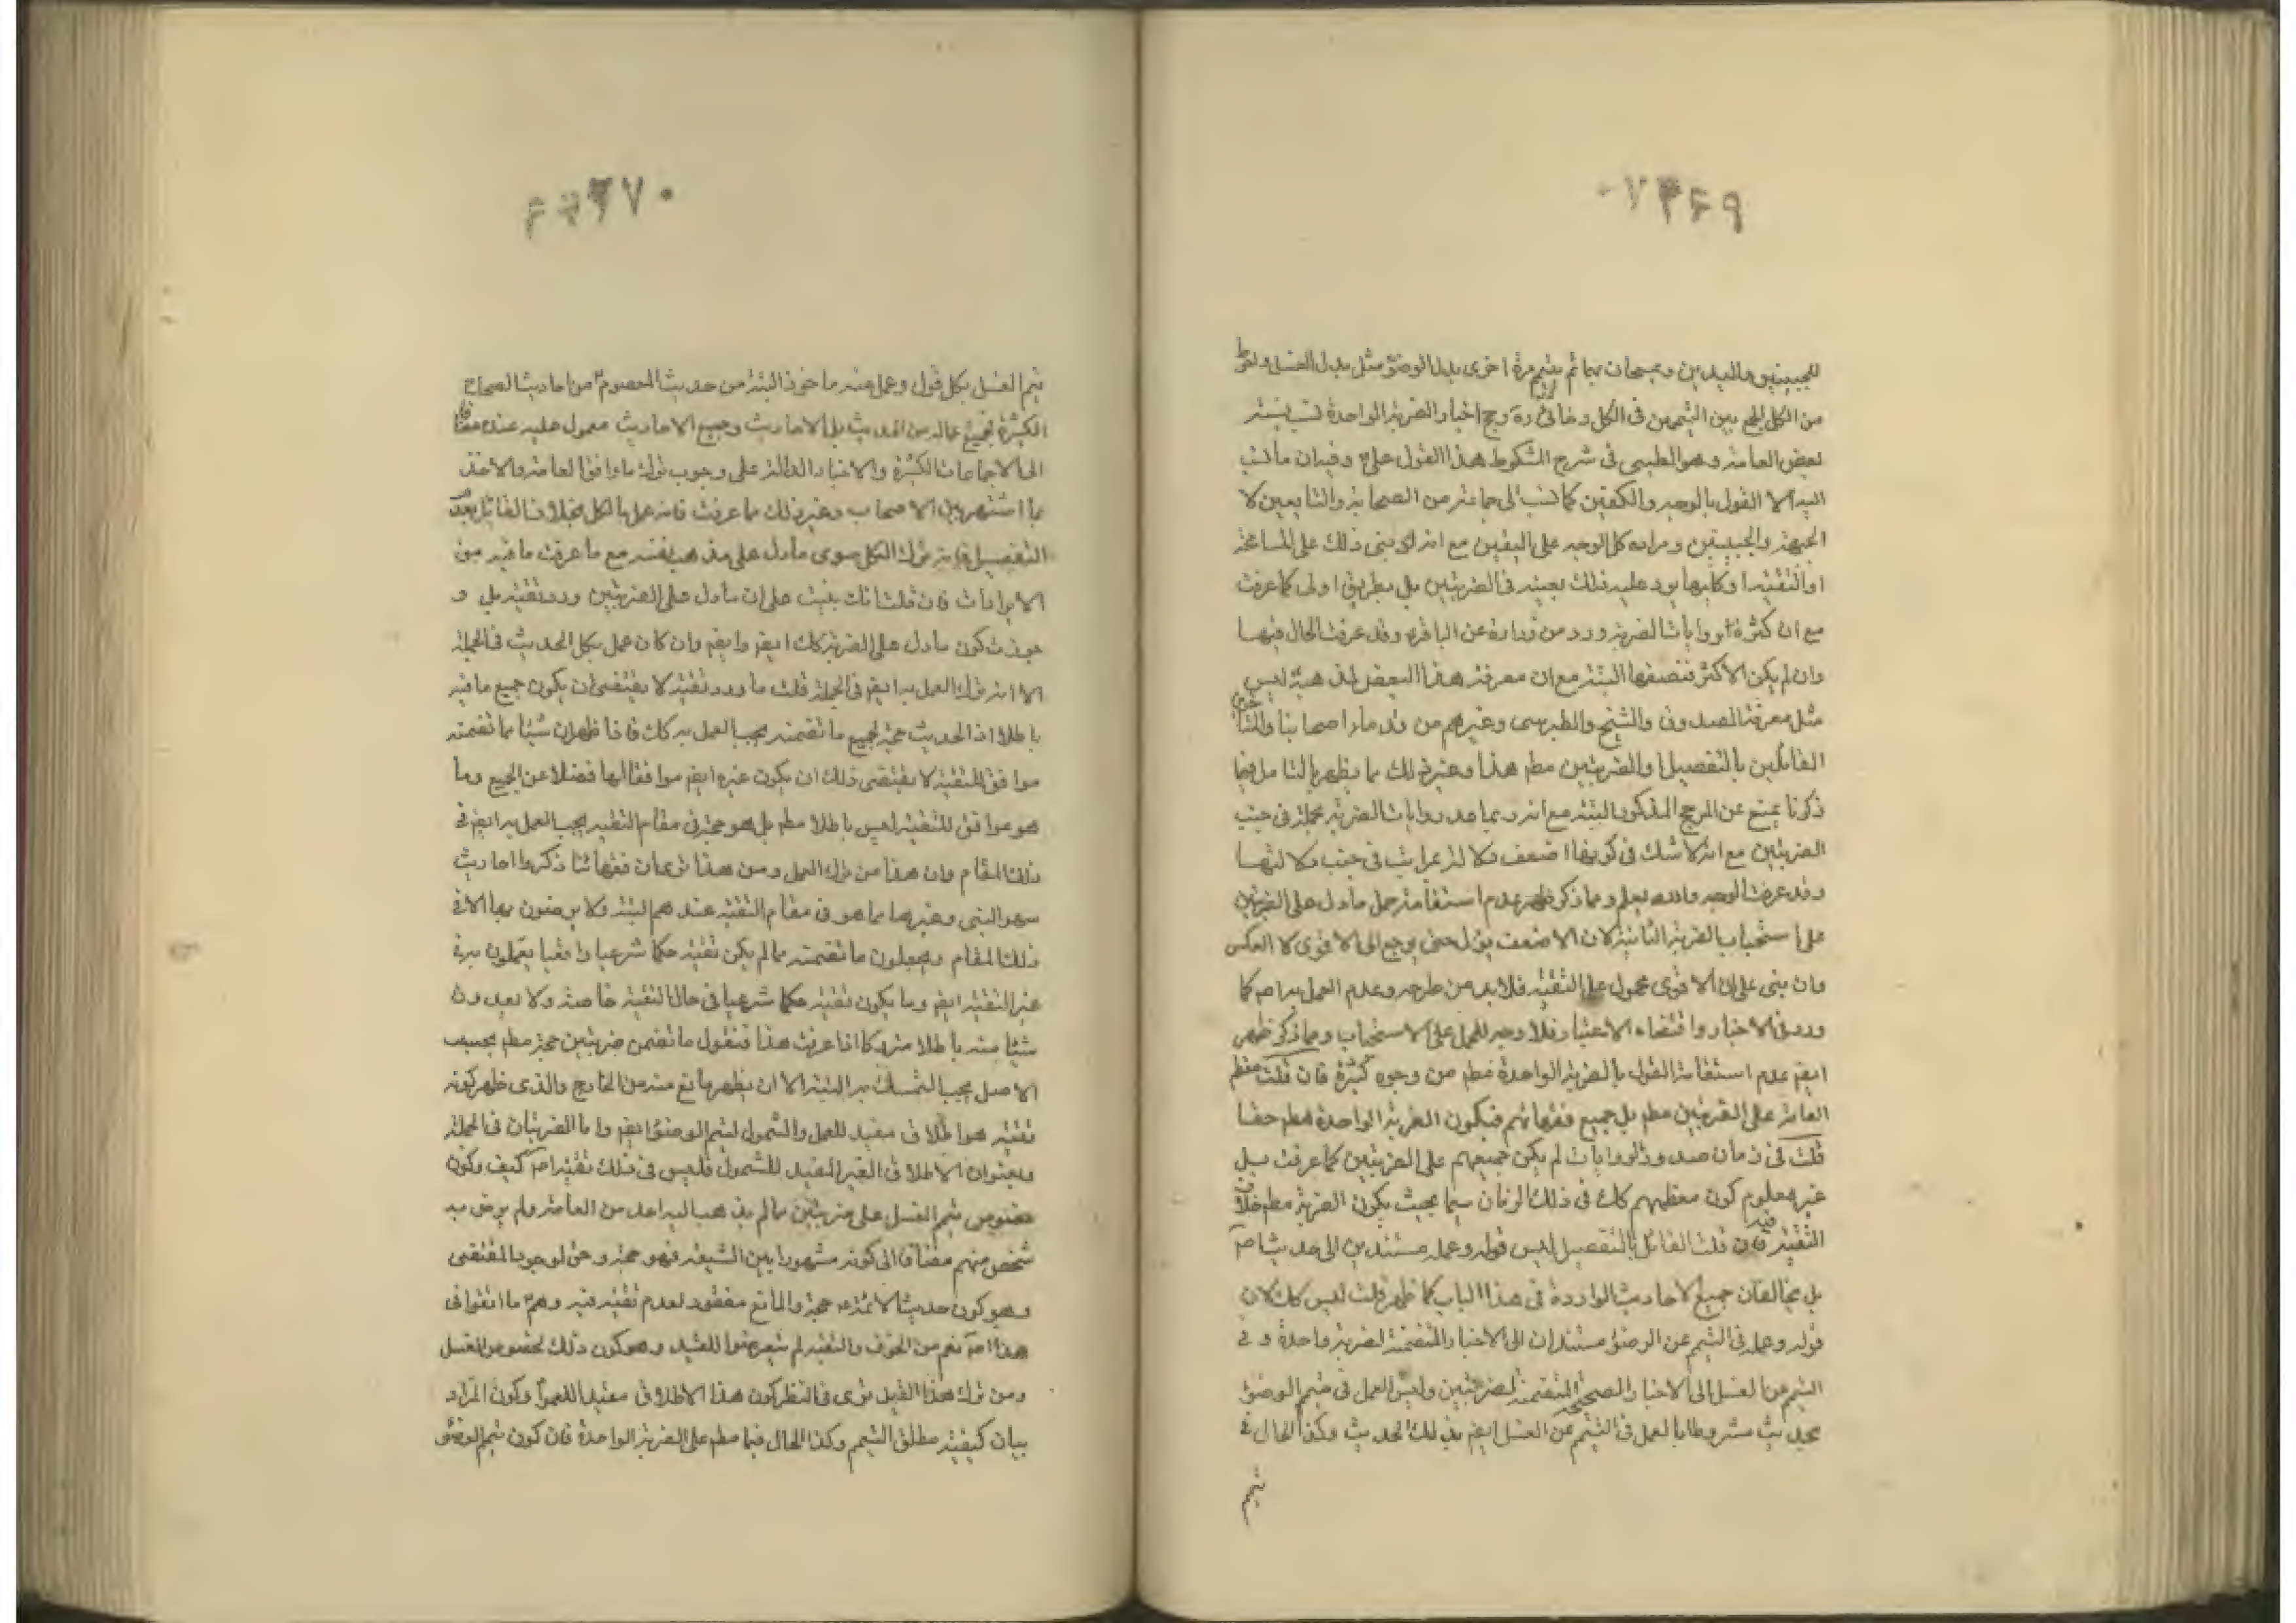 ٣٦٩
للجبينين واليدين ويمسحان بهما ثم يتيمم مرة اخرى بدل الوضوء مثل بدل الغسل
من الكل الجمع بين التيممين في الكل اخبار الضربة الواحدة
بعض العامة وهو الطيبي في شرح المشكوة هذا القول علي ع وفيه ان ما نسب
اليه الا القول بالوجه والكفين كما نسب الى جماعة من الصحابة والتابعين لا
الجبهة والجبينين ومراده كل الوجه على اليقين مع انه لو بنى ذلك على المسامحة
او التقية او كليهما يرد عليه ذلك بعينه في الضربتين بل بطريق اولى كما عرفت
مع ان كثرة الروايات الضربة ورد من زرارة عن الباقر ع وقد عرفت الحال فيها
وان لم يكن الاكثر فنصفها البتة مع ان معرفة هذا البعض لمذهبه ليس
مثل معرفة الصدوق والشيخ والطبرسي وغيرهم من قدماء اصحابنا
القائلين بالتفصيل او الضربتين مطم هذا وغير ذلك مما يظهر بالتامل فيما
ذكرنا يمنع عن المرجح المذكور البتة مع انه ربما يعد روايات الضربة مجملة في جنب
الضربتين مع انه لا شك في كونها اضعف دلالة بمراتب في جنب دلالتها
وقد عرفت الوجه والله يعلم ومما ذكر ظهر عدم استقامة حمل ما دل على الضربتين
على استحباب الضربة الثانية لان الاضعف يؤل حتى يرجع الى الاقوى لا العكس
وان بنى على ان الاقوى محمول على التقية فلا بد من طرحه وعدم العمل به اصم كما
ورد في الاخبار واقتضاه الاعتبار فلا وجه للحمل على الاستحباب ومما ذكر ظهر
ايضم عدم استقامة القول بالضربة الواحدة مطم من وجوه كثيرة فان قلت معظم
العامة على الضربتين مطم بل جميع فقهائهم فيكون الضربة الواحدة مطم حقا
قلت في زمان صدور الروايات لم يكن جميعهم على الضربتين كما عرفت بل
غير معلوم كون معظمهم كك في ذلك الزمان سيما بحيث يكون الضربة مطم خلاف
التقية فيه فان قلت القائل بالتفصيل ليس قوله وعمله مستندين الى حديث اصم
بل يخالفان جميع الاحاديث الواردة في هذا الباب كما ظهر قلت ليس كك لان
قوله وعمله في التيمم عن الوضوء مستندان الى الاخبار المتضمنة لضربة واحدة وفي
التيمم عن الغسل الى الاخبار الصحيحة المتضمنة لضربتين وليس العمل في تيمم الوضوء
بحديث مشروطا بالعمل في التيمم عن الغسل ايضم بذلك الحديث وكذا الحال في
تيمم
٣٧٠
تيمم الغسل بكل قول وعمل منه ماخوذ البتة من حديث المعصوم ع من احاديث الصحاح
الكثيرة فجميع ماله من الحديث بل الاحاديث وجميع الاحاديث معمول عليه عنده مضافا
الى الاجماعات الكثيرة والاخبار الدالة على وجوب ترك ما وافق العامة والاخذ
بما اشتهر بين الاصحاب وغير ذلك مما عرفت فانه عمل بالكل بخلاف القائل بعدم
التفصيل فانه ترك الكل سوى ما دل على مذهب نفسه مع ما عرفت ما فيه من
الايرادات فان قلت انك بنيت على ان ما دل على الضربتين ورد تقية بل و
جوزت كون ما دل على الضربة كك ايضم وايضم وان كان عمل بكل الحديث في الجملة
الا انه ترك العمل به ايضم في الجملة قلت ما ورد تقية لا يقتضي ان يكون جميع ما فيه
باطلا اذ الحديث حجة لجميع ما تضمنه يجب العمل به كك فاذا ظهر ان شيئا مما تضمنه
موافق للتقية لا يقتضي ذلك ان يكون غيره ايضم موافقا لها فضلا عن الجميع وما
هو موافق للتقية ليس باطلا مطم بل هو حجة في مقام التقية يجب العمل به ايضم في
ذلك المقام وان هذا من ترك العمل ومن هذا ترى ان فقهائنا ذكروا احاديث
سهو النبي وغيرها مما هو في مقام التقية عندهم البتة ولا يرضون بها الا في
ذلك المقام ويجعلون ما تضمنته مما لم يكن تقية حكما شرعيا واقعيا يعملون به في
غير التقية ايضم وما يكون تقية حكما شرعيا في حال التقية خاصة ولا يعدون
شيئا منه باطلا متروكا اذا عرفت هذا فنقول ما تضمن ضربتين حجة مطم بحسب
الاصل يجب التمسك به البتة الا ان يظهر مانع منه من الخارج والذي ظهر كونه
تقية هو اطلاق مفيد للعمل والشمول لتيمم الوضوء ايضم واما الضربتان في الجملة
وبعنوان الاطلاق الغير المفيد للشمول فليس في ذلك تقية اصم كيف وكون
خصوص تيمم الغسل على ضربتين مما لم يذهب اليه احد من العامة ولم يرض به
شخص منهم مضافا الى كونه مشهورا بين الشيعة فهو حجة وحق لوجود المقتضى
وهو كون حديث الائمة ع حجة والمانع مفقود لعدم تقية فيه وهم ع ما اتقوا في
هذا اصم نعم من الخوف والتقية لم يتعرضوا للقيد وهو كون ذلك لخصوص الغسل
ومن ترك هذا القيد ترى في النظر كون هذا الاطلاق مفيدا للعموم وكون المراد
بيان كيفية مطلق التيمم وكذا الحال فيما مطم على الضربة الواحدة فان كون تيمم الوضوء